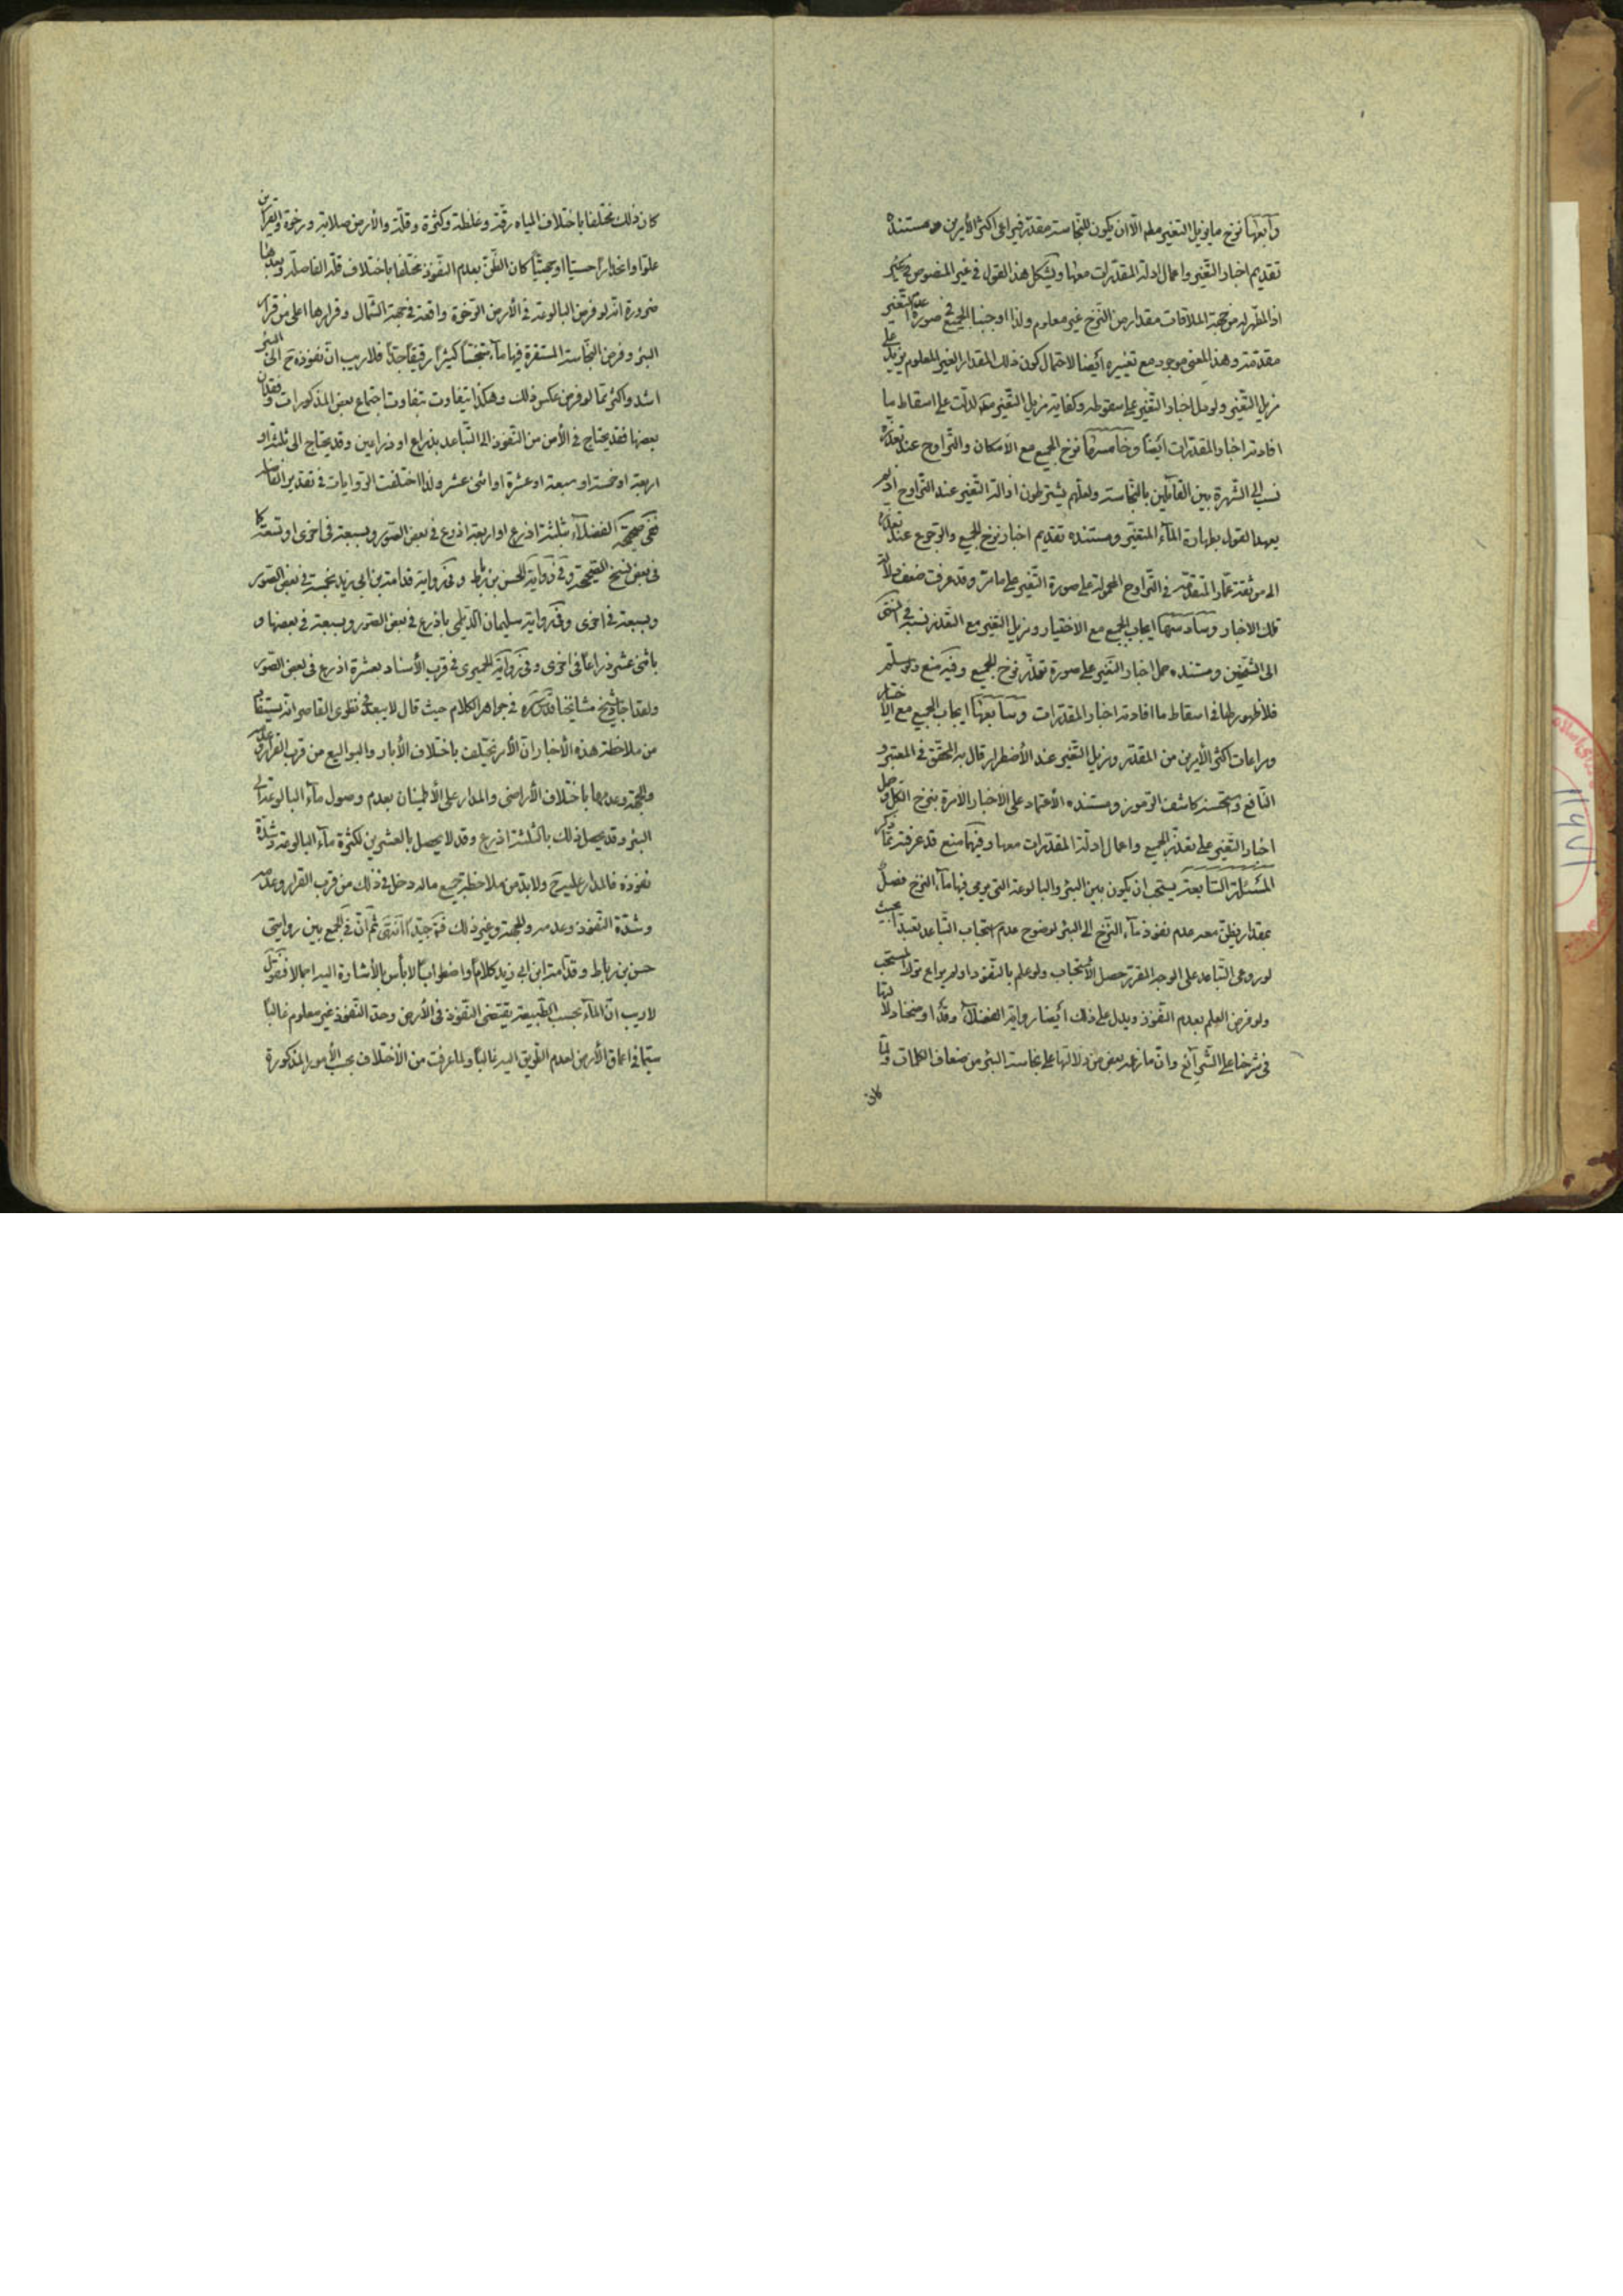 وآبعها نزح ما يزيل التغير مطلقا الا ان يكون للنجاسة مقدر فيراعى اكثر الأمرين ومستنده
تقديم اخبار التغير واعمال ادلة المقدرات معها ويشكل هذا القول في غير المنصوص
اذ المطهر له من جهة الملاقات مقدار من النزح غير معلوم ولذا اوجبنا الجميع في صورة عدم التغير
مقدمة وهذا المعنى موجود مع تغييره أيضا لاحتمال كون ذلك المقدار الغير المعلوم يزيد على
مزيل التغير ولو دل اخبار التغير على سقوطه وكفاية مزيل التغير لدلت على اسقاط ما
افادته اخبار المقدرات ايضا وخامسها نزح الجميع مع الامكان والتراوح عند تعذره
نسب الى الشهرة بين القائلين بالنجاسة ولعلهم يشترطون ازالة التغير عند التراوح اذ لم
يعهد القول بطهارة الماء المتغير ومستنده تقديم اخبار نزح الجميع والرجوع عند تعذره
الى موثقة عمار المتقدمة في التراوح المحمولة على صورة التغير على ما مر وقد عرفت ضعف دلالة
تلك الاخبار وسادسها ايجاب الجميع مع الاختيار ومزيل التغير مع التعذر نسبه في المنتهى
الى الشيخين ومستنده حمل اخبار التغير على صورة تعذر نزح الجميع وفيه منع ولو سلم
فلا ظهور لها في اسقاط ما افادته اخبار المقدرات وسابعها ايجاب الجميع مع الاختيار
ومراعات اكثر الأمرين من المقدر ومزيل التغير عند الأضطرار قال به المحقق في المعتبر و
النافع واستحسنه كاشف الرموز ومستنده الأعتماد على الاخبار الامرة بنزح الكل وحمل
اخبار التغير على تعذر الجميع واعمال ادلة المقدرات معها وفيهما منع قد عرفته مما ذكر
المسئلة السابعة يستحب ان يكون بين البئر والبالوعة التي يرمى فيها ماء النزح فصل
بمقدار يظن معه عدم نفوذ ماء النزح الى البئر لوضوح عدم استحباب التباعد تعبدا بحيث
لو روعى التباعد على الوجه المقرر حصل الأستحباب ولو علم بالنفوذ او لم يراع ترك المستحب
ولو فرض العلم بعدم النفوذ ويدل على ذلك أيضا رواية الفضلاء وقد اوضحنا دلالتها
في شرحنا على الشرائع وان ما زعمه بعض من دلالتها على نجاسة البئر من ضعاف الكلمات ولما
كان
كان ذلك مختلفا باختلاف المياه رقة وغلظة وكثرة وقلة والأرض صلابة ورخوة والقرارين
علوا وانحدارا حسيا او جهتيا كان الظن بعدم النفوذ مختلفا باختلاف قلة الفاصلة وبعدها
ضرورة انه لو فرض البالوعة في الأرض الرخوة واقعة في جهة الشمال وقرارها اعلى من قرار
البئر وفرض النجاسة المستقرة فيها ماء متنجسا كثيرا رقيقا جدا فلا ريب ان نفوذه ح الى البئر
اشد واكثر مما لو فرض عكس ذلك وهكذا يتفاوت بتفاوت اجتماع بعض المذكورات وفقدان
بعضها فقد يحتاج في الأمن من النفوذ الى التباعد بذراع او ذراعين وقد يحتاج الى ثلثة او
اربعة او خمسة او سبعة او عشرة او اثنى عشر ولذا اختلفت الروايات في تقدير الفاصلة
ففى صحيحة الفضلاء بثلثة اذرع او اربعة اذرع في بعض الصور وبسبعة في اخرى او تسعة كما
في بعض نسخ الصحيحة وفي رواية الحسن بن رباط وفي رواية قدامة بن ابي زيد بخمسة في بعض الصور
وبسبعة في اخرى وفي رواية سليمان الديلمي باذرع في بعض الصور وبسبعة في بعضها و
باثنى عشر ذراعا في اخرى وفي رواية الحميرى في قرب الأسناد بعشرة اذرع في بعض الصور
ولقد اجاد شيخ مشايخنا قدس سره في جواهر الكلام حيث قال لا يبعد في نظرى القاصر انه يستفاد
من ملاحظة هذه الأخبار ان الأمر يختلف باختلاف الأبار والبواليع من قرب القرار وعدمه
والجهة وعدمها باختلاف الأراضى والمدار على الأطمينان بعدم وصول ماء البالوعة الى
البئر وقد يحصل ذلك بالثلثة اذرع وقد لا يحصل بالعشرين لكثرة ماء البالوعة وشدة
نفوذه فالمدار عليه ح ولا بد من ملاحظة جميع ماله دخل في ذلك من قرب القرار وعدمه
وشدة النفوذ وعدمه والجهة وغير ذلك فتامل جيدا انتهى ثم ان في الجمع بين روايتى
حسن بن رباط وقدامة ابن ابي زيد كلاما واضطرابا لا بأس بالأشارة اليه اجمالا فنقول
لا ريب ان الماء بحسب الطبيعة يقتضى النفوذ في الأرض وحد النفوذ غير معلوم غالبا
سيما في اعماق الأرض لعدم الطريق اليه غالبا ولما عرفت من الأختلاف بحسب الأمور المذكورة